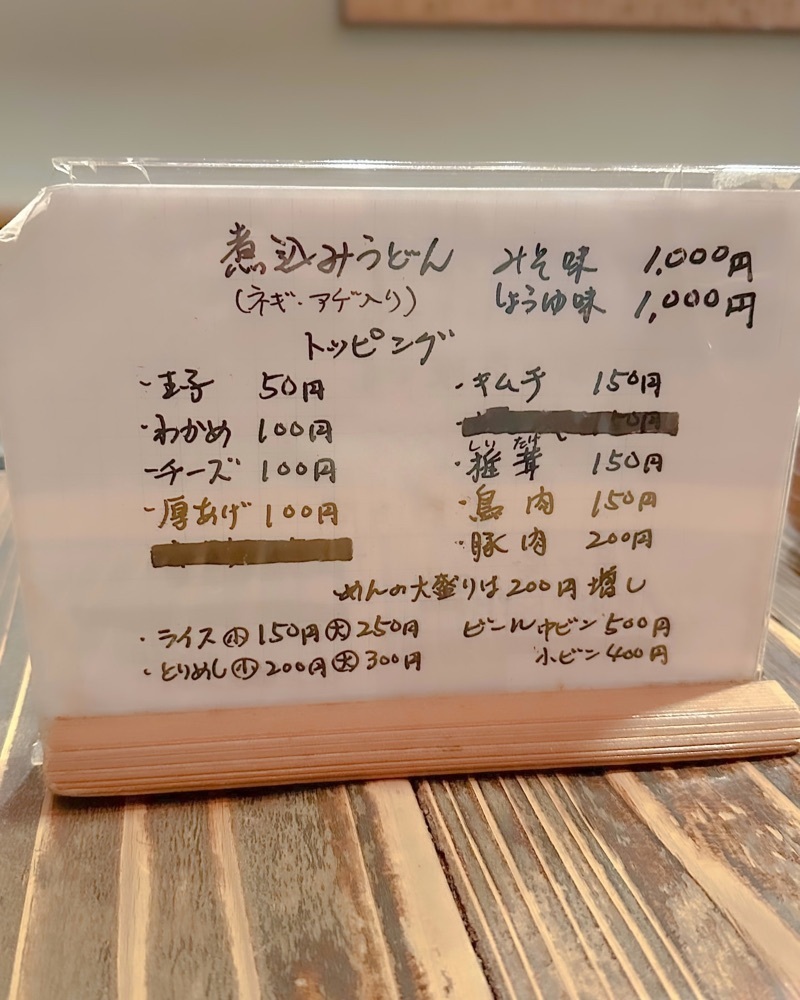 煮込みうどん みそ味 1,000円
(ネギ・アゲ入り) しょうゆ味 1,000円
トッピング
・玉子 50円
・わかめ 100円
・チーズ 100円
・厚あげ 100円
・キムチ 150円
しい たけ
・椎茸 150円
・鳥肉 150円
・豚肉 200円
めんの大盛りは200円増し
・ライス㊙小 150円 大 250円
・とりめし 小 200円 大 300円
ビール中ビン 500円
小ビン 400円